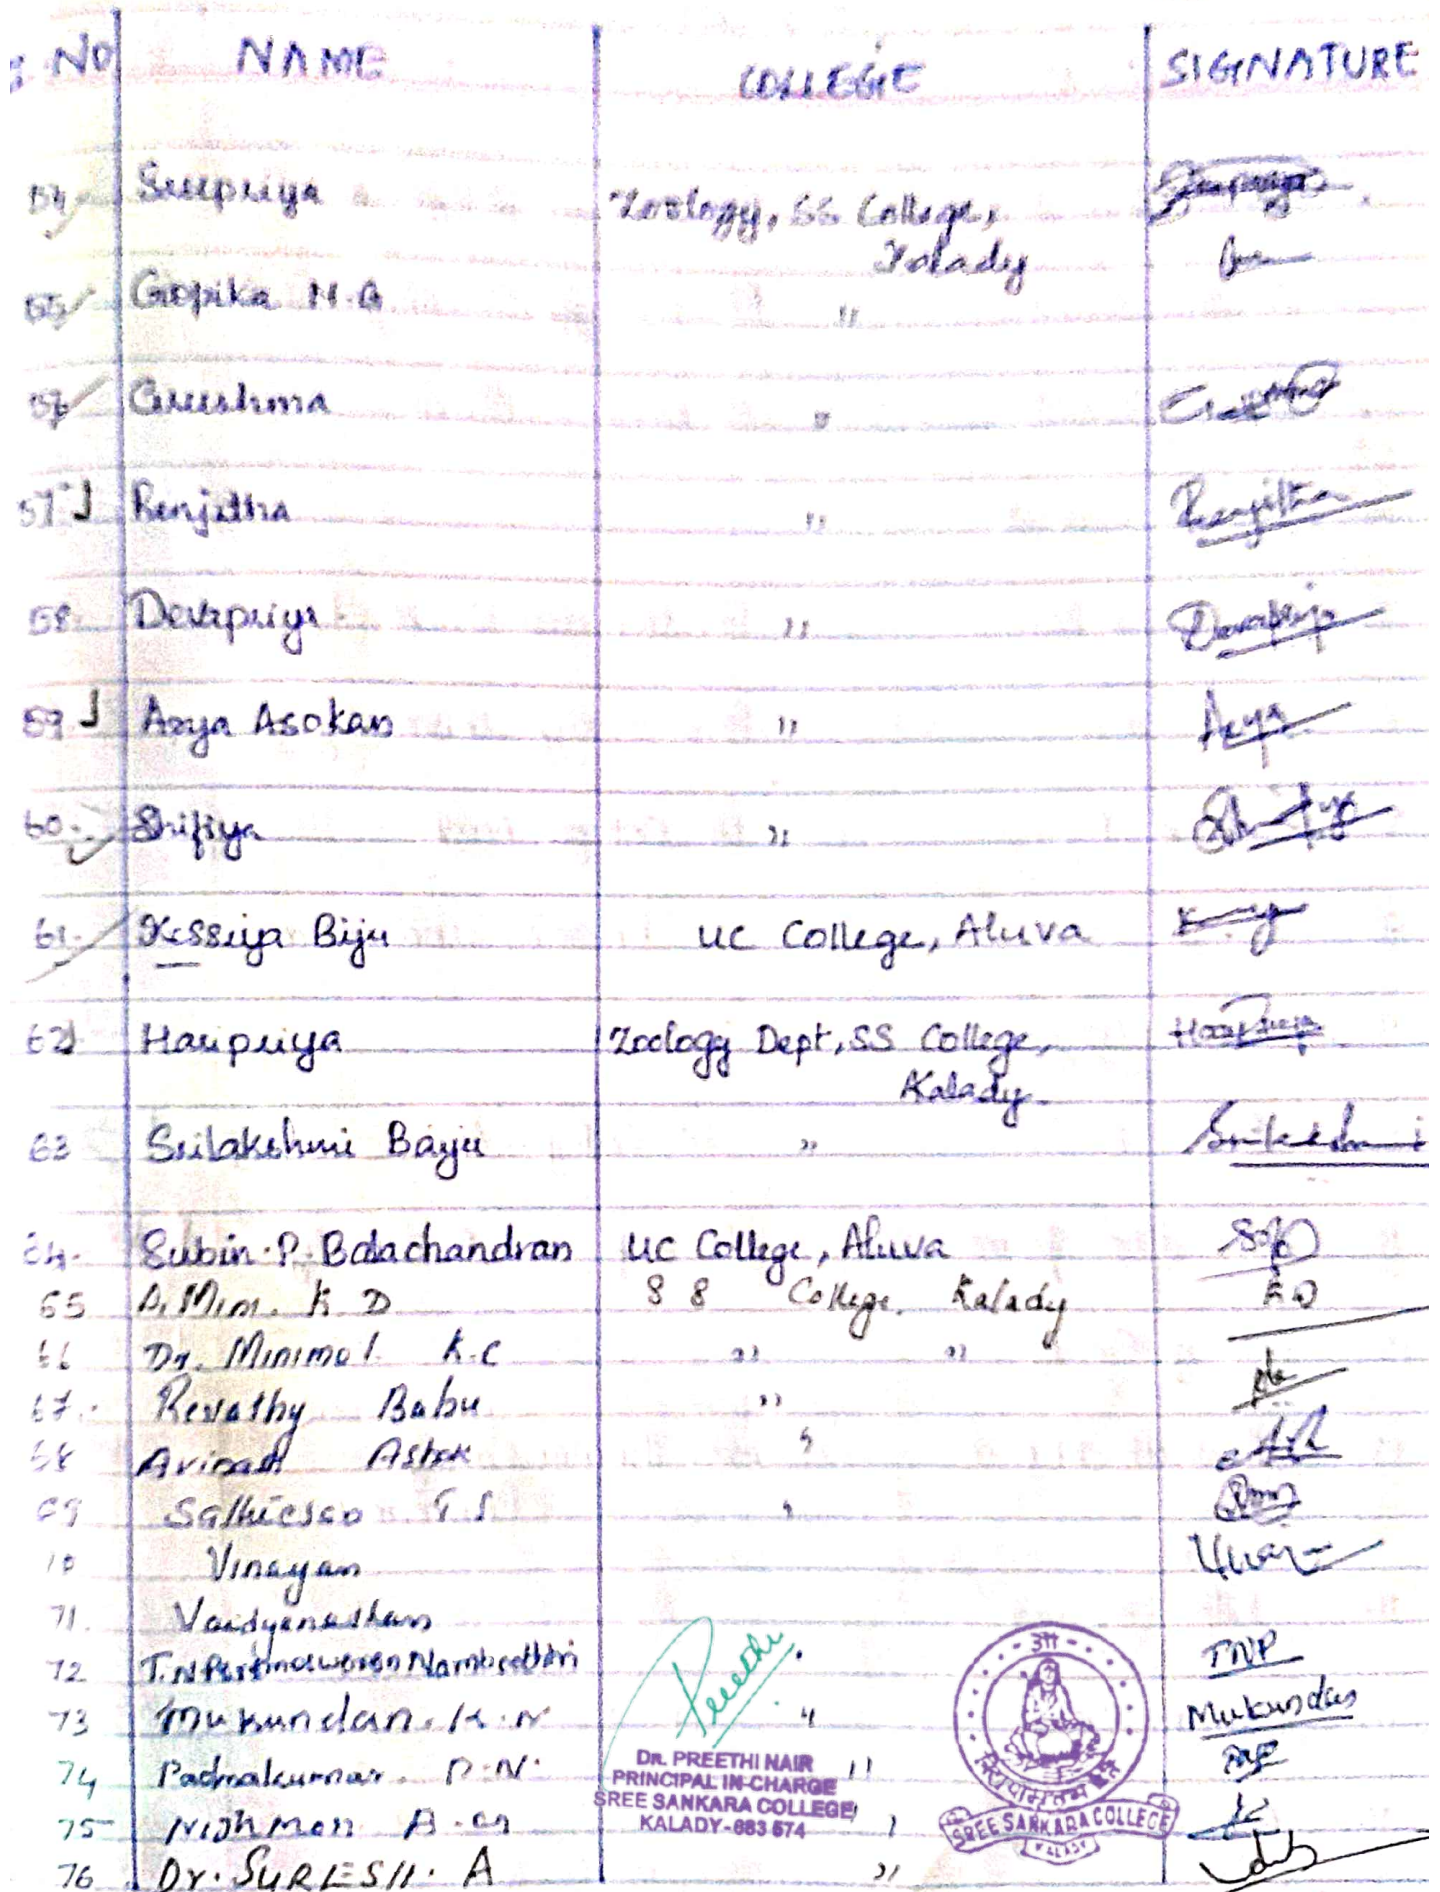 NO NAME COLLEGE SIGNATURE
54. Sreepriya Zoology, SS College,
Kalady
55. Gopika N.G "
56. Greeshma " Greeshma
57. Renjitha " Renjitha
58. Devapriya " Devapriya
59. Arya Asokan " Arya
60. Shifiya "
61. Kessiya Biju UC College, Aluva
62. Haripriya Zoology Dept, SS College, Haripriya
Kalady.
63 Srilakshmi Bayju " Srilakshmi
64. Subin. P. Balachandran UC College, Aluva
65 K D S S College. Kalady K D
66 Dr. Minimol. K.C " "
67. Revathy Babu "
68 Avinash Ashok "
69 T.S "
70 Vinayan
71. Vaidyanathan
72 T.N Parameswaran Namboothiri TNP
73 Mukundan. K.N " Mukundan
74 Padmakumar. P.N. "
75 A. "
76 Dr. SURESH. A "
Preethi
DR. PREETHI NAIR
PRINCIPAL IN-CHARGE
SREE SANKARA COLLEGE
KALADY-683 574
SREE SANKARA COLLEGE
KALADY